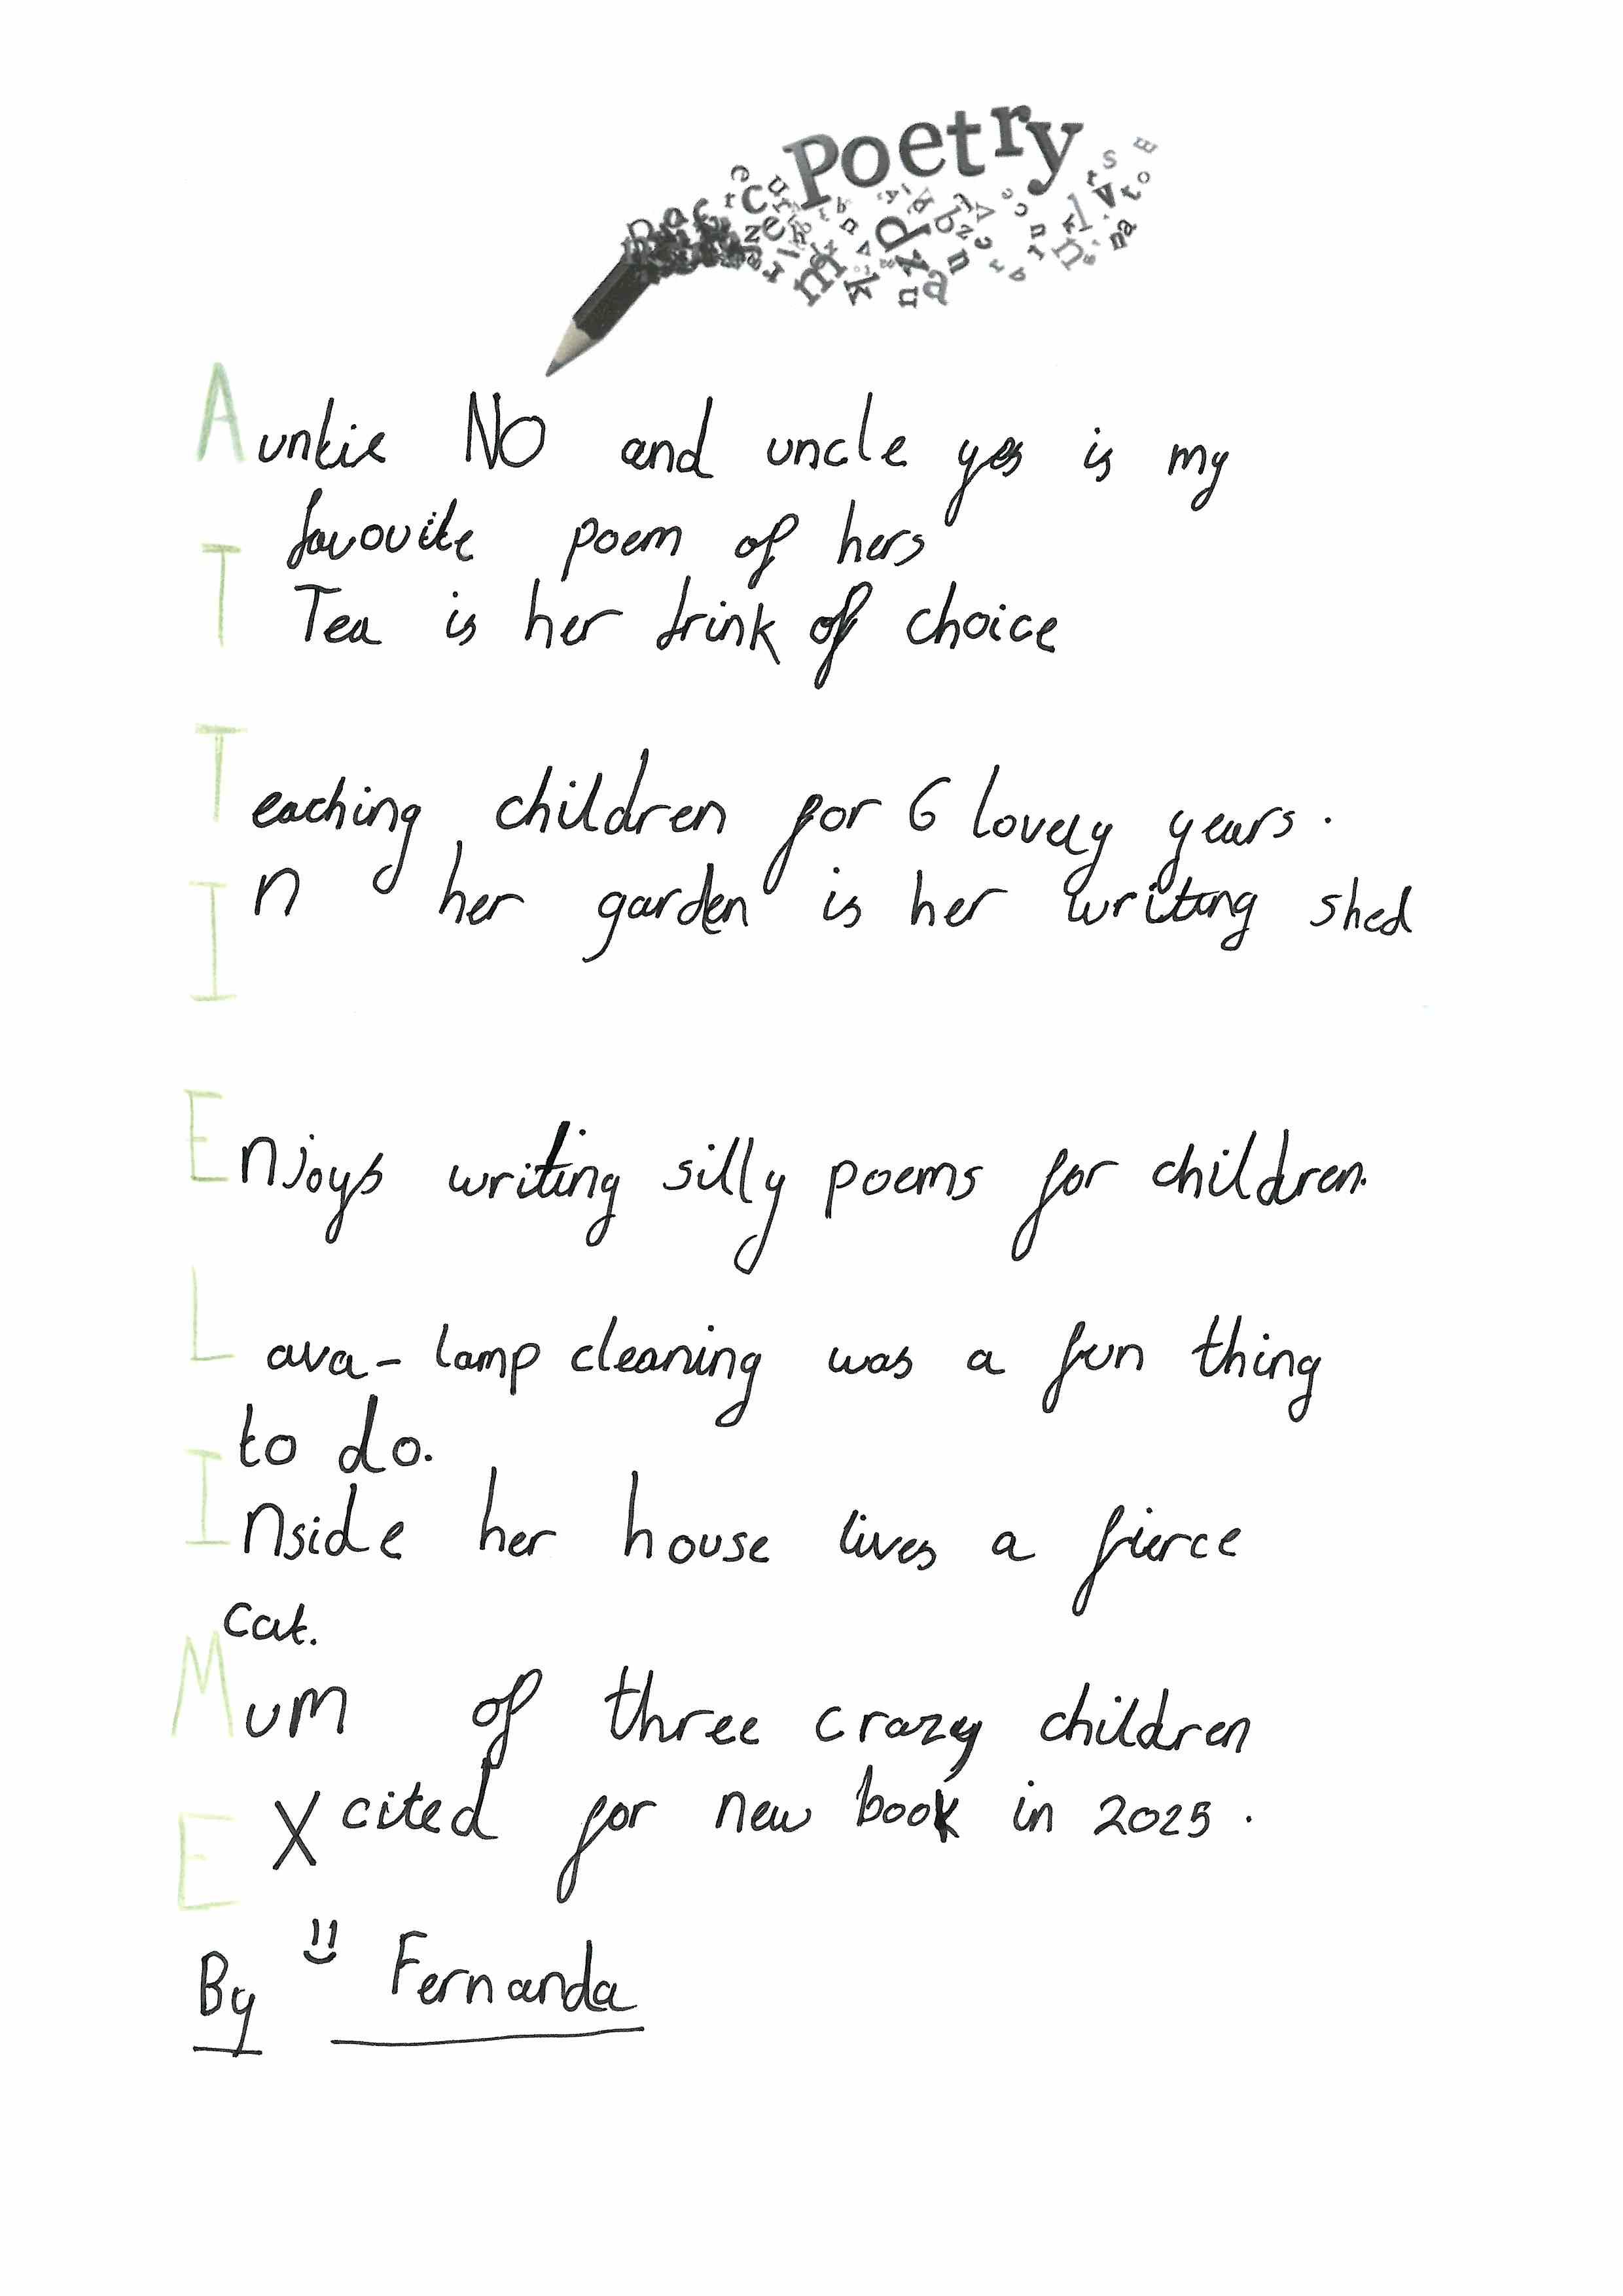 Poetry
Auntie NO and uncle yes is my
favouite poem of hers
T Tea is her drink of choice
Teaching children for 6 lovely years.
In her garden is her writing shed
Enjoys writing silly poems for children.
Lava-lamp cleaning was a fun thing
to do.
Inside her house lives a fierce
cat.
Mum of three crazy children
EXcited for new book in 2025.
By Fernanda